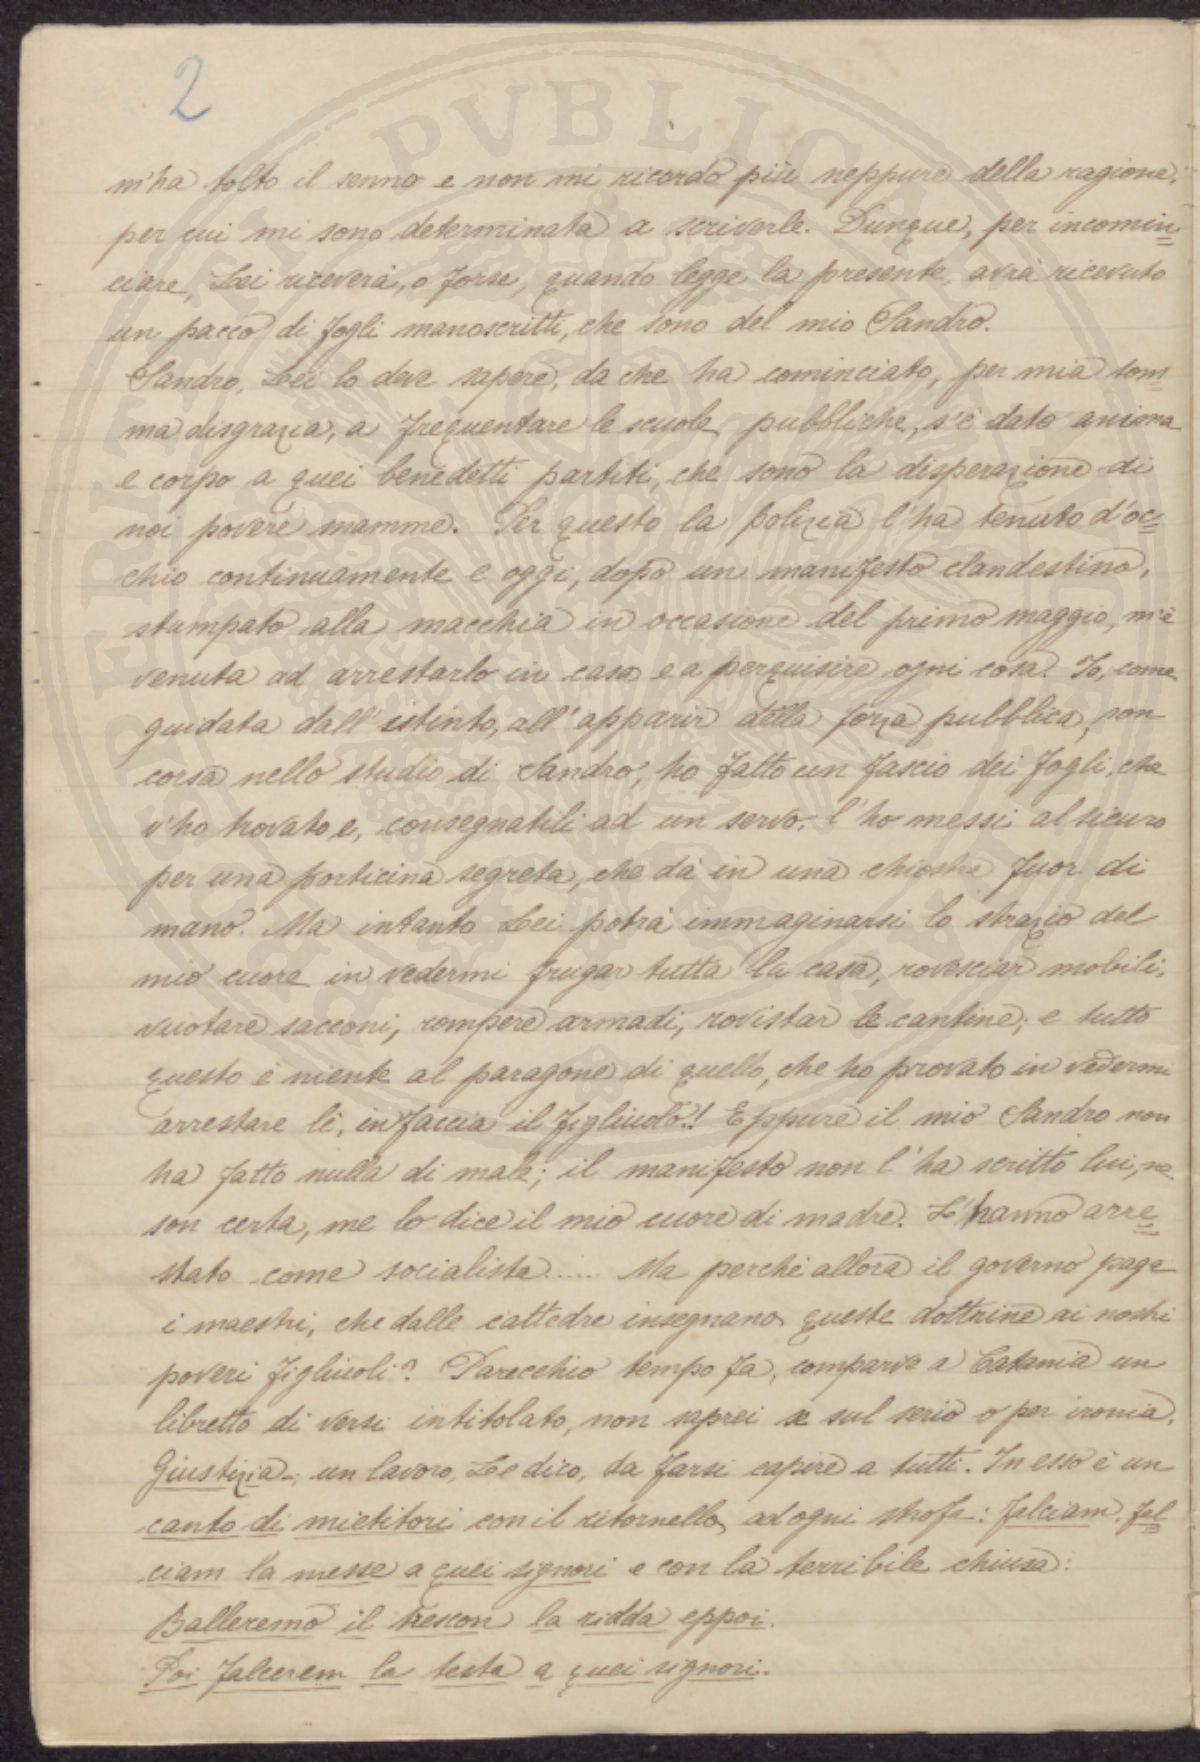 2
m'ha tolto il senno e non mi ricordo più neppure della ragione,
per cui mi sono determinata a scriverle. Dunque, per incomin=
ciare, Lei riceverà, o forse, quando legge la presente, avrà ricevuto
un pacco di fogli manoscritti, che sono del mio Sandro.
Sandro, Lei lo deve sapere, da che ha cominciato, per mia som=
ma disgrazia, a frequentare le scuole pubbliche, s'è dato anima
e corpo a quei benedetti partiti, che sono la disperazione di
noi povere mamme. Per questo la polizia l'ha tenuto d'oc=
chio continuamente e oggi, dopo un manifesto clandestino,
stampato alla macchia in occasione del primo maggio, m'è
venuta ad arrestarlo in casa e a perquisire ogni cosa. Io, come
guidata dall'istinto, all'apparir della forza pubblica, son
corsa nello studio di Sandro, ho fatto un fascio dei fogli, che
v'ho trovato e, consegnatili ad un servo, l'ho messi al sicuro
per una porticina segreta, che dà in una chiostra fuor di
mano. Ma intanto Lei potrà immaginarsi lo strazio del
mio cuore in vedermi frugar tutta la casa, rovesciar mobili,
vuotare sacconi, rompere armadi, rovistar le cantine; e tutto
questo è niente al paragone di quello, che ho provato in vedermi
arrestare lì, in faccia il figliuolo!! Eppure il mio Sandro non
ha fatto nulla di male; il manifesto non l'ha scritto lui, ne
son certa, me lo dice il mio cuore di madre. L'hanno arre=
stato come socialista..... Ma perchè allora il governo paga
i maestri, che dalle cattedre insegnano queste dottrine ai nostri
poveri figliuoli? Parecchio tempo fa, comparve a Catania un
libretto di versi intitolato, non saprei se sul serio o per ironia,
Giustizia-, un lavoro, Le dico, da farsi capire a tutti. In esso è un
canto di mietitori con il ritornello, ad ogni strofa: falciam, fal=
ciam la messe a quei signori e con la terribile chiusa:
Balleremo il trescon la ridda eppoi.
Poi falcerem la testa a quei signori.
PVBLICA